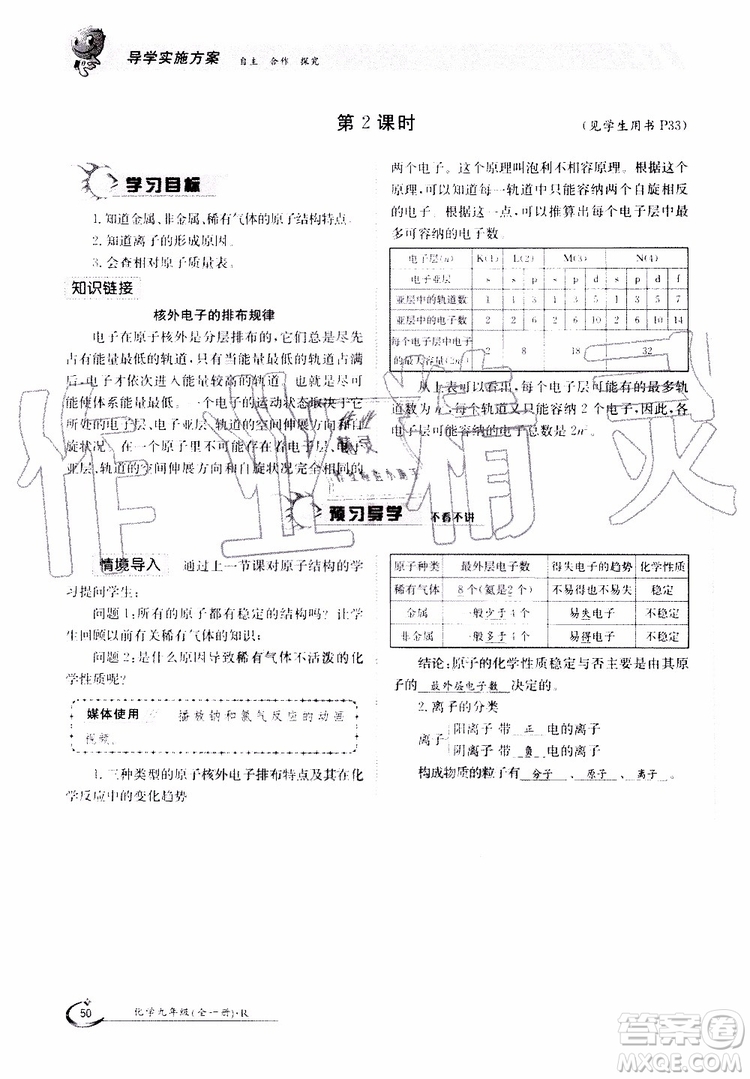 导学实施方案 自主 合作 探究
第2课时
(见学生用书 P33)
学习目标
1.知道金属、非金属、稀有气体的原子结构特点。
2.知道离子的形成原因。
3.会查相对原子质量表。
知识链接
核外电子的排布规律
电子在原子核外是分层排布的,它们总是尽先
占有能量最低的轨道,只有当能量最低的轨道占满
后,电子才能进入能量较高的轨道,也就是尽可能使
体系能量最低。一个电子的运动状态取决于它
所处的电子层、电子亚层、轨道的空间伸展方向和自
旋状况。在一个原子里不可能存在着电子层、电子
亚层、轨道的空间伸展方向和自旋状况完全相同的
两个电子。这个原理叫泡利不相容原理。根据这个
原理,可以知道每一轨道中只能容纳两个自旋相反
的电子。根据这一点,可以推算出每个电子层中最
多可容纳的电子数。
电子层(n) K(1) L(2) M(3) N(4)
电子亚层 s s p s p d s p d f
亚层中的轨道数 1 1 3 1 3 5 1 3 5 7
亚层中的电子数 2 2 6 2 6 10 2 6 10 14
每个电子层中电子
的最大容量(2n²) 2 8 18 32
从上表可以看出,每个电子层可能有的最多轨
道数为n²,每个轨道又只能容纳2个电子,因此,各
电子层可能容纳的电子总数是2n²。
预习导学 不看不讲
情境导入 通过上一节课对原子结构的学
习提问学生:
问题1:所有的原子都有稳定的结构吗?让学
生回顾以前有关稀有气体的知识:
问题2:是什么原因导致稀有气体不活泼的化
学性质呢?
媒体使用 播放钠和氯气反应的动画
视频。
1.三种类型的原子核外电子排布特点及其在化
学反应中的变化趋势
原子种类 最外层电子数 得失电子的趋势 化学性质
稀有气体 8个(氦是2个) 不易得也不易失 稳定
金属 一般少于4个 易失电子 不稳定
非金属 一般多于4个 易得电子 不稳定
结论:原子的化学性质稳定与否主要是由其原
子的 最外层电子数 决定的。
2.离子的分类
离子
阳离子 带 正 电的离子
阴离子 带 负 电的离子
构成物质的粒子有 分子 、 原子 、 离子 。
50 化学九年级(全一册)·R
作业精灵
作业
精灵
答案圈
MXQE.COM